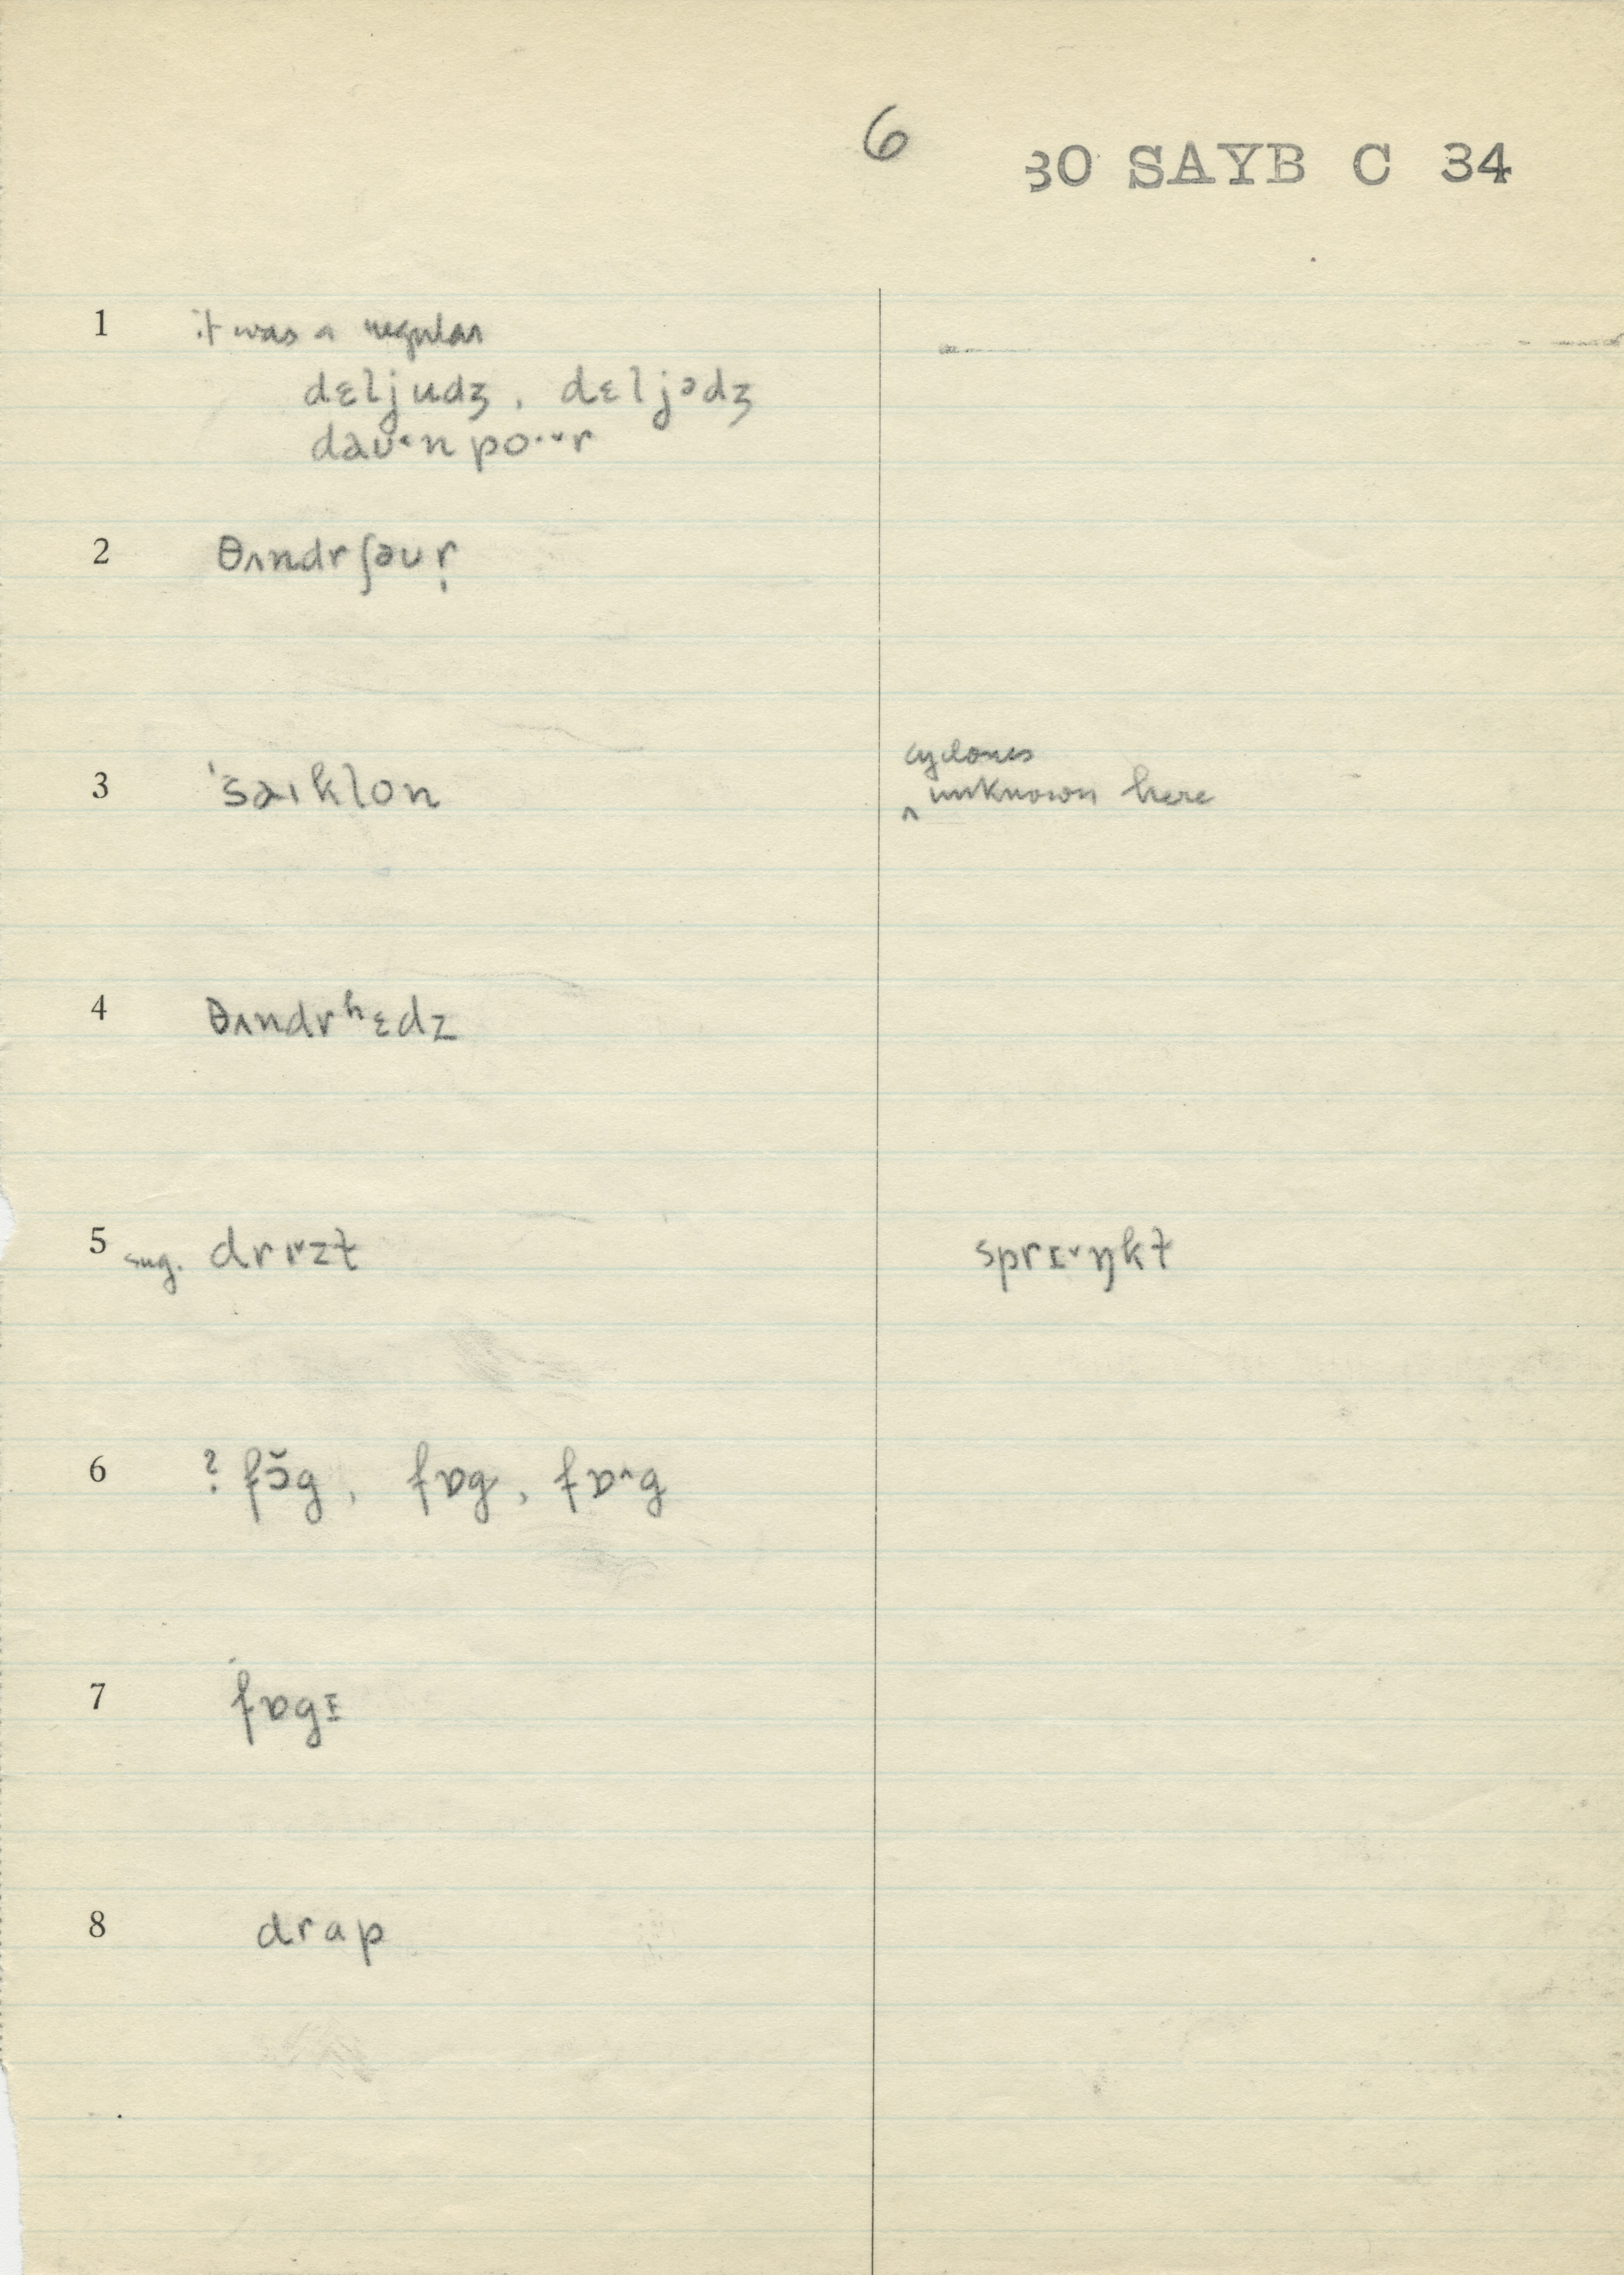 6 30 SAYB C 34
1 it was a regular
dɛljudʒ, dɛljədʒ
dəu˂n po·˅r
2 θʌndrʃəur̩
cyclones
3 ˈsəıklon ‸ unknown here
4 θʌndrʰɛdz
5 sug. drı˅zt sprɪ˅ŋkt
6 ? fɔ̆g, fɒg, fɒ˄g
7 fɒgɪ
8 drap